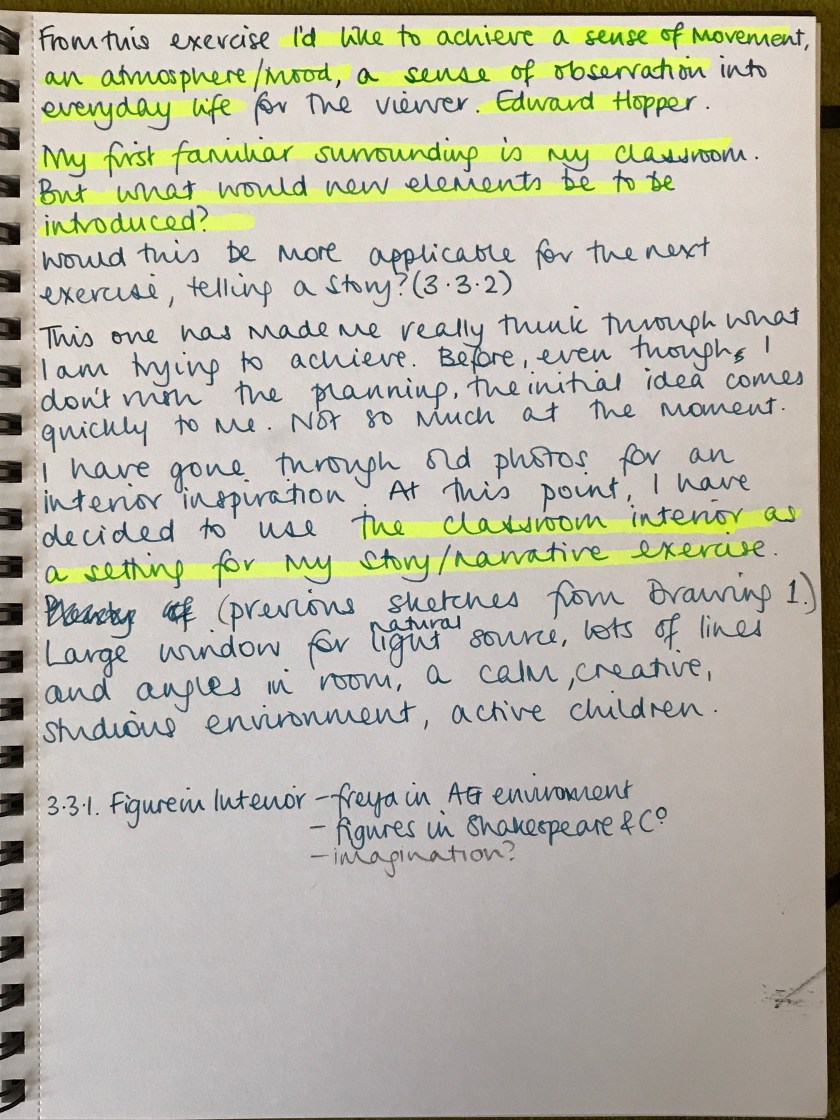 From this exercise I'd like to achieve a sense of movement,
an atmosphere/mood, a sense of observation into
everyday life for the viewer. Edward Hopper.
My first familiar surrounding is my classroom.
But what would new elements be to be
introduced?
Would this be more applicable for the next
exercise, telling a story? (3.3.2)
This one has made me really think through what
I am trying to achieve. Before, even though I
don't the planning, the initial idea comes
quickly to me. Not so much at the moment.
I have gone through old photos for an
interior inspiration. At this point, I have
decided to use the classroom interior as
a setting for my story/narrative exercise.
(previous sketches from Drawing 1.)
Large window for natural light source, lots of lines
and angles in room, a calm, creative,
studious environment, active children.
3.3.1. Figure in Interior - freya in AG enviroment
- figures in Shakespeare & Co
- imagination?